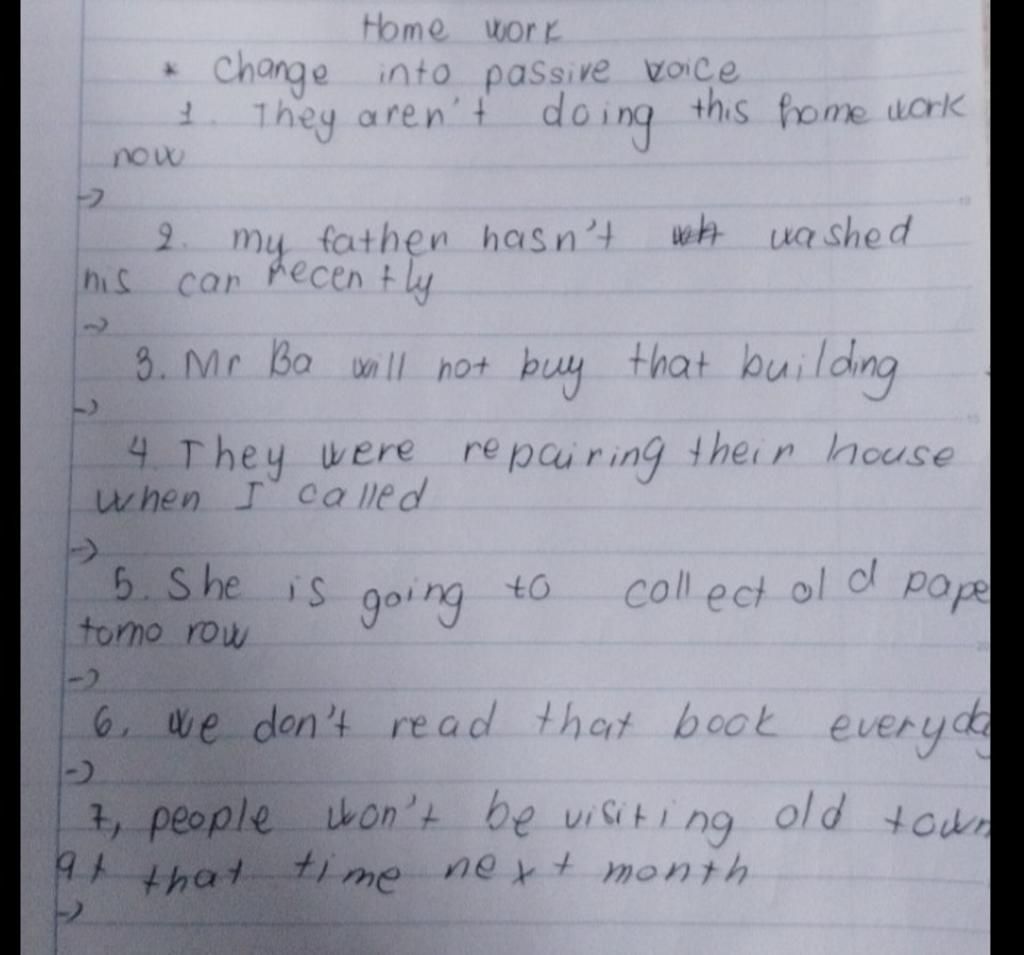 Home work
* Change into passive voice
1. They aren't doing this home work
now
->
2. my father hasn't washed
his car recently
->
3. Mr Ba will not buy that building
->
4 They were repairing their house
when I called
->
5. She is going to collect old pape
tomo row
->
6. we don't read that book everyda
->
7, people won't be visiting old town
at that time next month
->